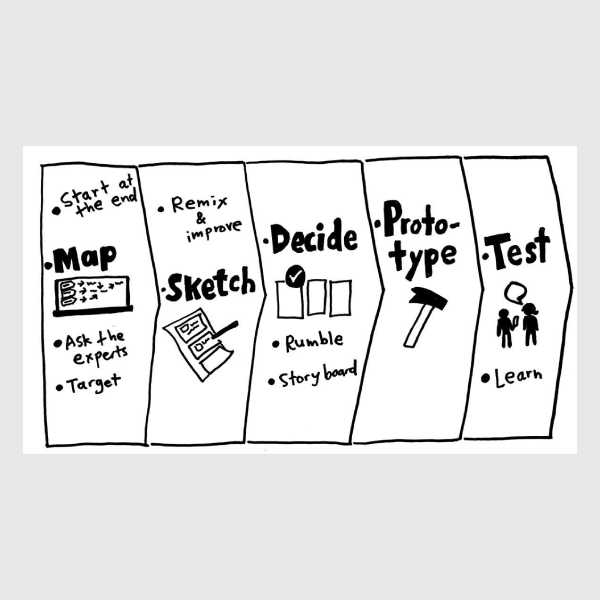 • Start at
the end
• Map
• Ask the
experts
• Target
• Remix
&
improve
• Sketch
• Decide
• Rumble
• Storyboard
• Proto-
type
• Test
• Learn